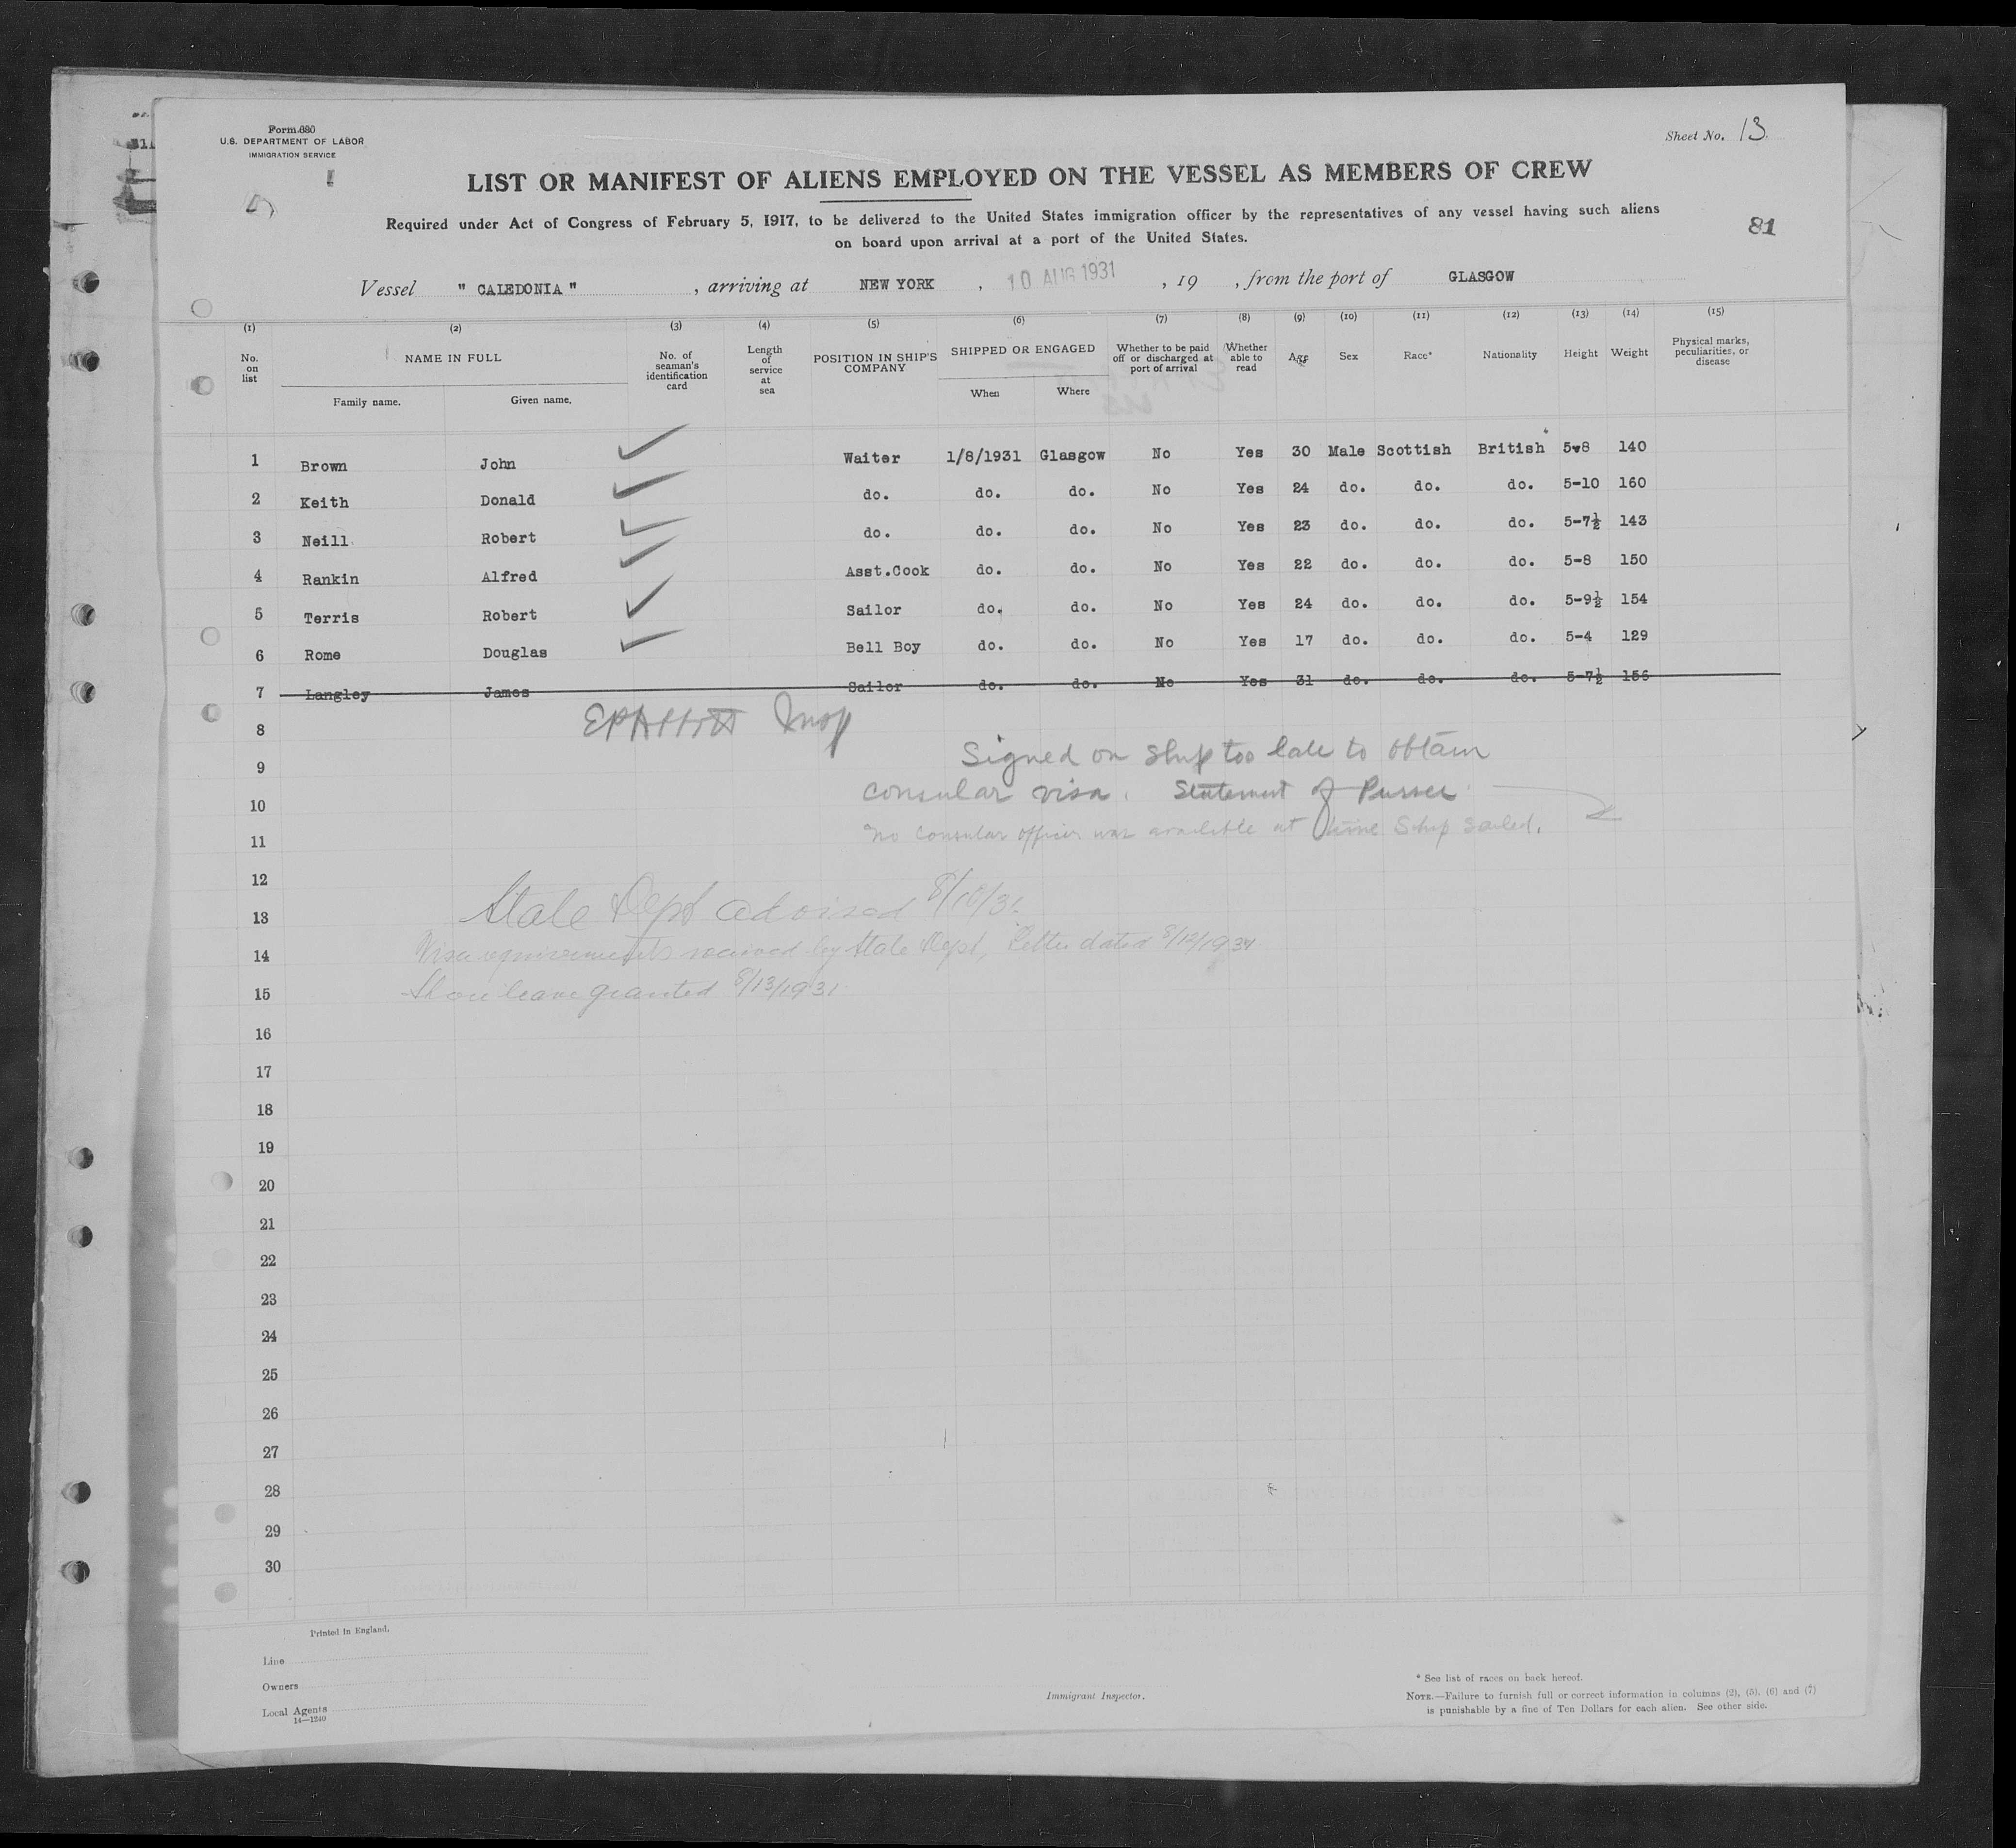 Form 680
U.S. DEPARTMENT OF LABOR
IMMIGRATION SERVICE
Sheet No. 13
LIST OR MANIFEST OF ALIENS EMPLOYED ON THE VESSEL AS MEMBERS OF CREW
Required under Act of Congress of February 5, 1917, to be delivered to the United States immigration officer by the representatives of any vessel having such aliens
on board upon arrival at a port of the United States.
81
Vessel " CALEDONIA " , arriving at NEW YORK , 10 AUG 1931 , 19 , from the port of GLASGOW
(1) (2) (3) (4) (5) (6) (7) (8) (9) (10) (11) (12) (13) (14) (15)
No. on list NAME IN FULL Family name. Given name. No. of seaman's identification card Length of service at sea POSITION IN SHIP'S COMPANY SHIPPED OR ENGAGED When Where Whether to be paid off or discharged at port of arrival Whether able to read Age Sex Race* Nationality Height Weight Physical marks, peculiarities, or disease
1 Brown John Waiter 1/8/1931 Glasgow No Yes 30 Male Scottish British 5-8 140
2 Keith Donald do. do. do. No Yes 24 do. do. do. 5-10 160
3 Neill Robert do. do. do. No Yes 23 do. do. do. 5-7½ 143
4 Rankin Alfred Asst.Cook do. do. No Yes 22 do. do. do. 5-8 150
5 Terris Robert Sailor do. do. No Yes 24 do. do. do. 5-9½ 154
6 Rome Douglas Bell Boy do. do. No Yes 17 do. do. do. 5-4 129
7 Langley James Sailor do. do. No Yes 31 do. do. do. 5-7½ 156
8 Insp
9 Signed on ship too late to obtain
10 consular visa. Statement of Purser
11 No consular officer was available at time Ship sailed.
12
13 State Dept advised 8/10/31.
14 Visa requirements waived by State Dept, Letter dated 8/12/1931
15 Shore leave granted 8/13/1931
16
17
18
19
20
21
22
23
24
25
26
27
28
29
30
Printed in England.
Line
Owners
Local Agents
14—1240
Immigrant Inspector.
* See list of races on back hereof.
NOTE.—Failure to furnish full or correct information in columns (2), (5), (6) and (7)
is punishable by a fine of Ten Dollars for each alien. See other side.